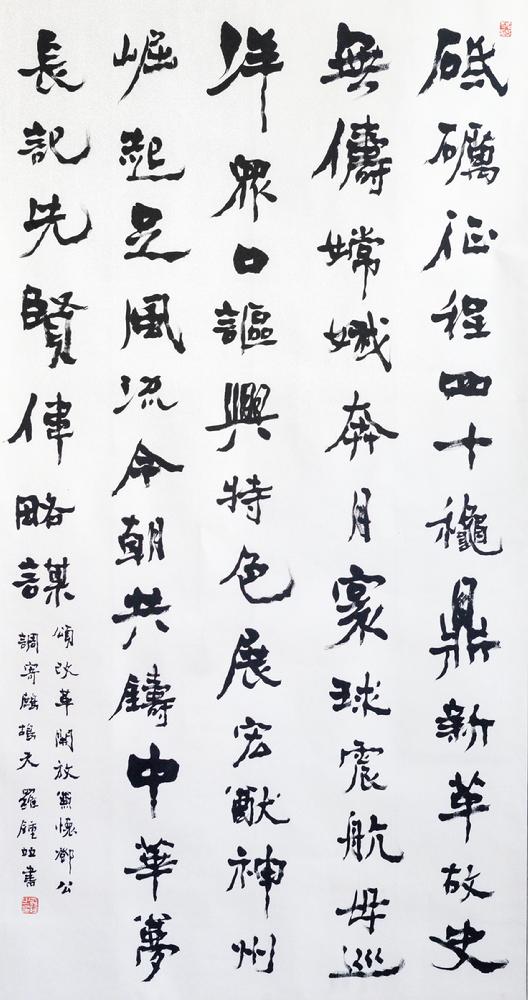 砥礪征程四十龝鼎新革故史
無儔嫦娥奔月寰球震航母巡
洋眾口謳興特色展宏猷神州
崛起足風流今朝共鑄中華夢
長記先賢偉略謀
頌改革開放兼懷鄧公
調寄鷓鴣天 羅鍾書